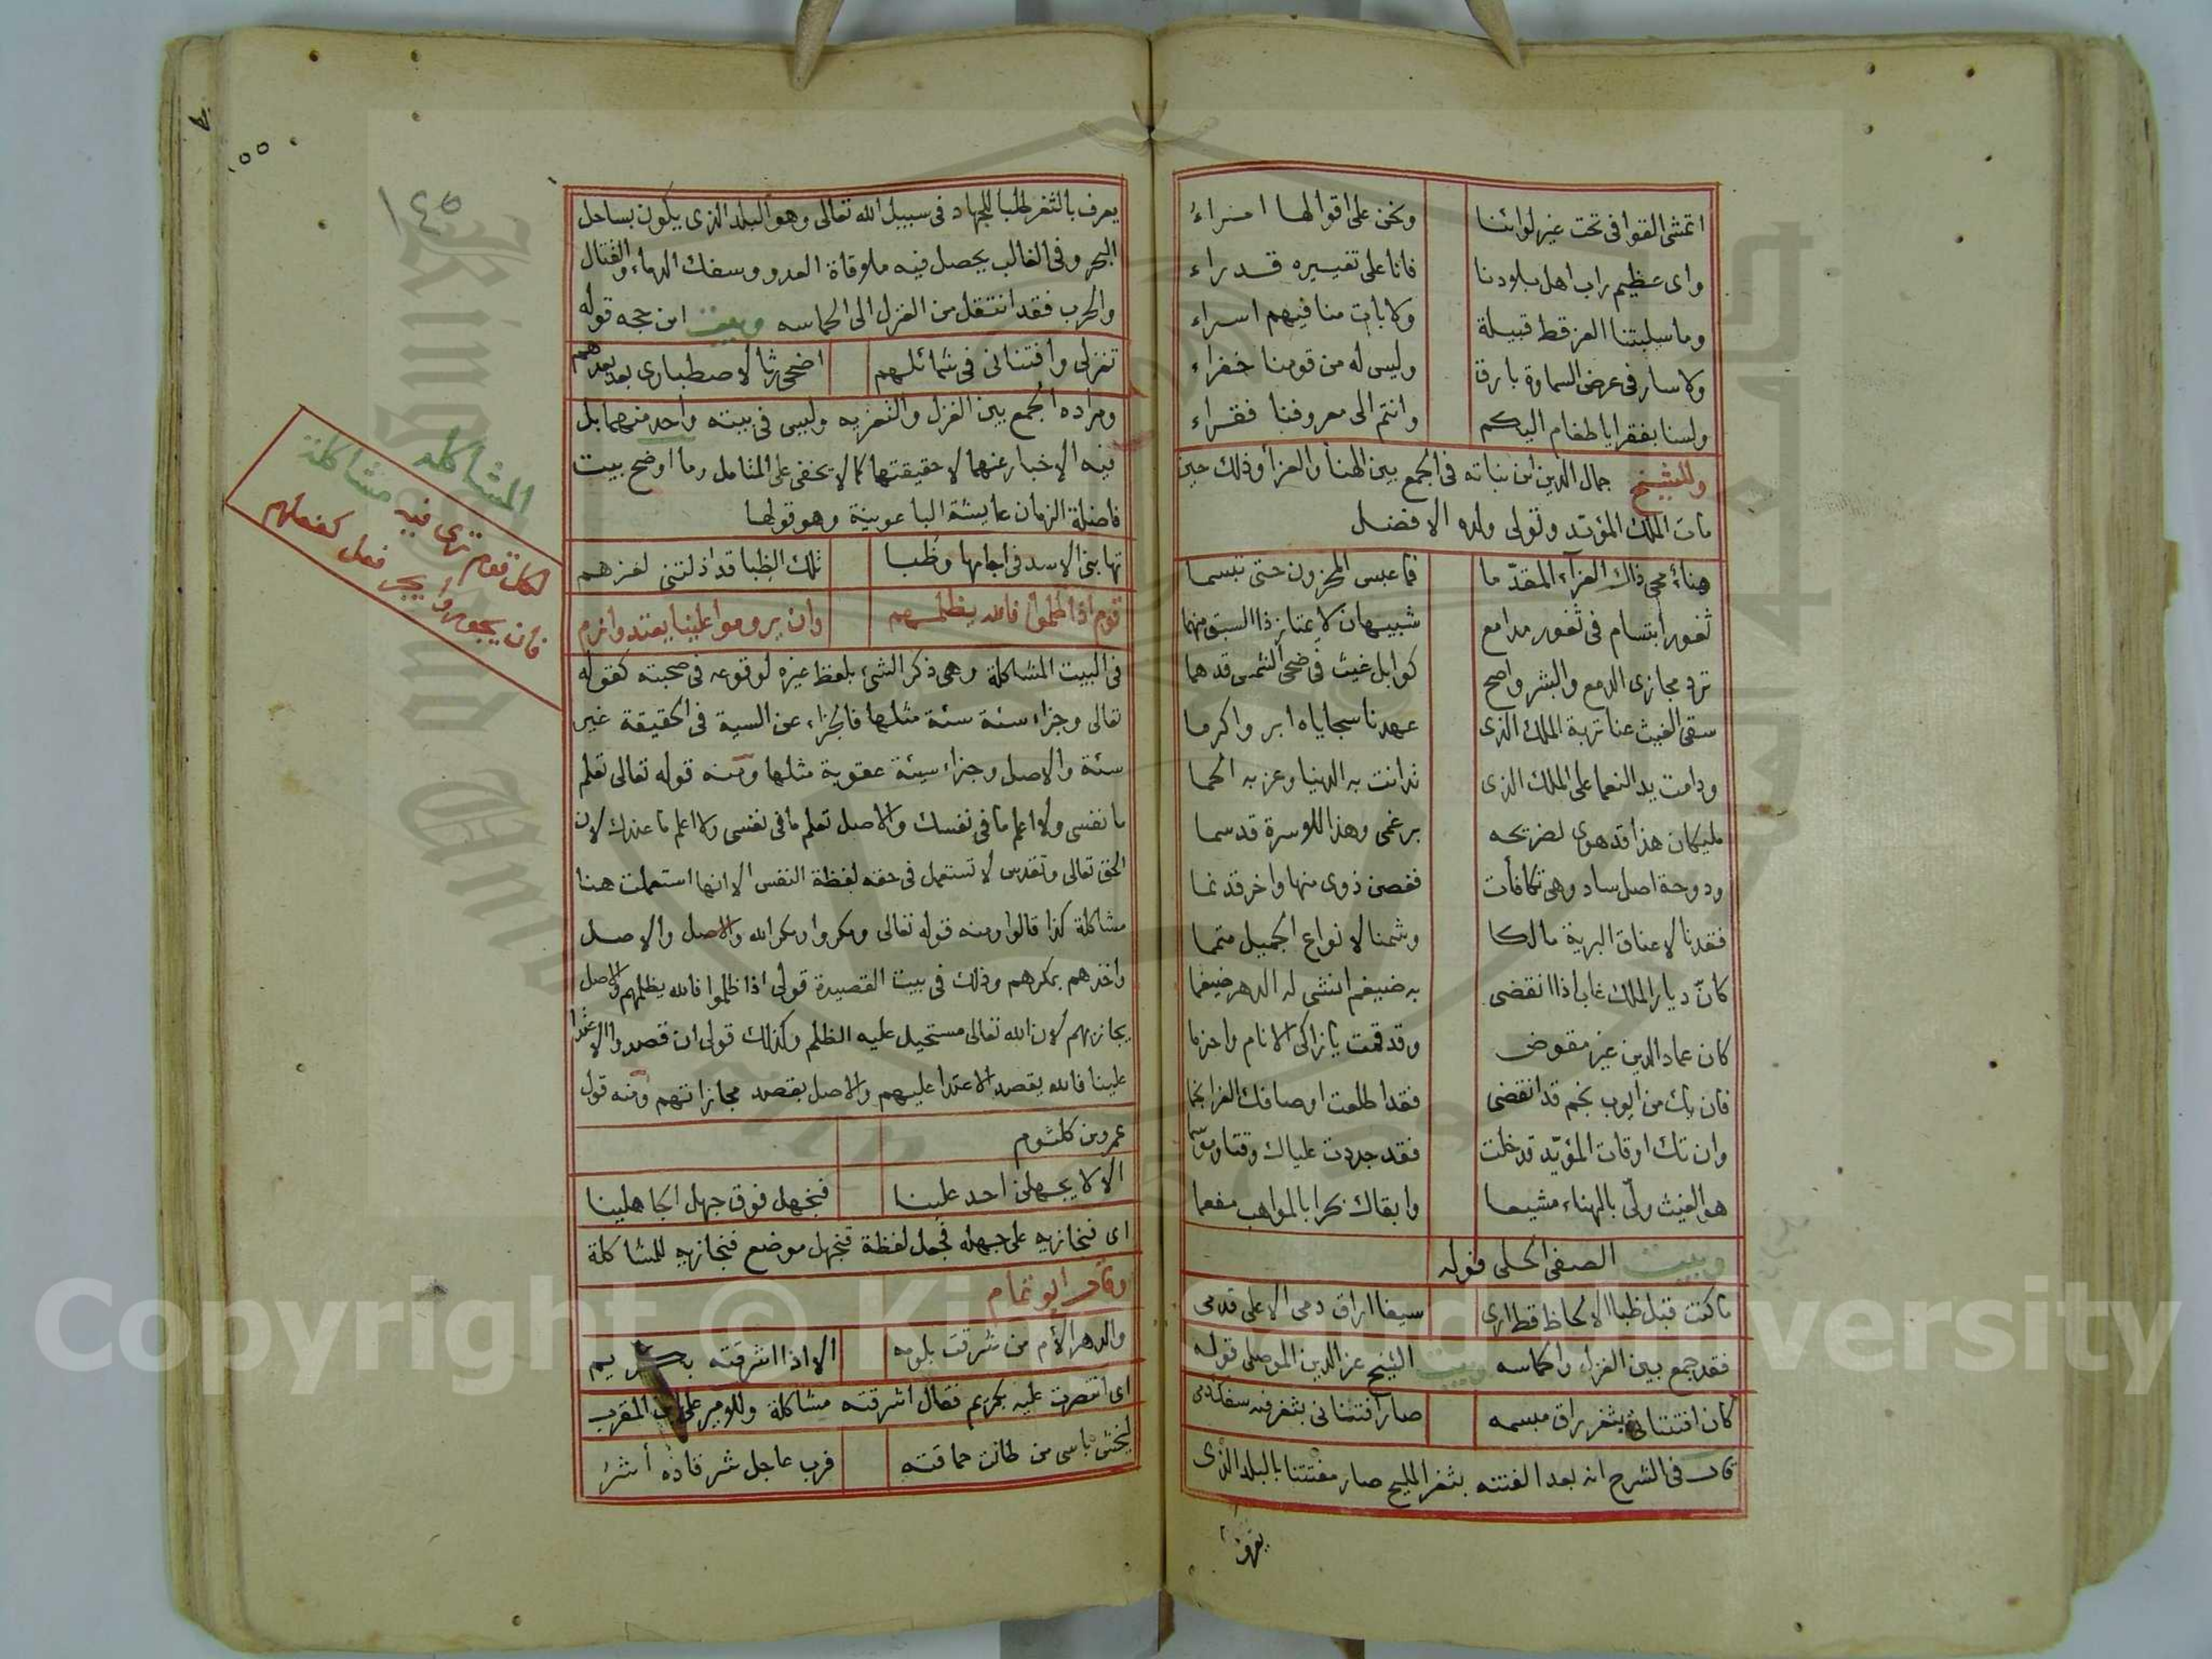 اتمشى القوافى تحت غير لوائنا ونحن على اقوالها امراء
واى عظيم راب اهل بلادنا فانا على تغييره قدراء
وما سلبتنا العز قط قبيلة ولا بات منا فيهم اسراء
ولا سار فى عرض السماوة بارق وليس له من قومنا خفراء
ولسنا بفقرا يا طغام اليكم وانتم الى معروفنا فقراء
وللشيخ جمال الدين ابن نباته فى الجمع بين الهنا والعزا وذلك حين
مات الملك المؤيد وتولى ولده الافضل
هناء محى ذاك العزآء المقدّما فما عبس المحزون حتى تبسما
ثغور ابتسام فى ثغور مدامع شبيهان لا يمتاز ذا السبق منهما
ترد مجارى الدمع والبشر واضح كوابل غيث فى ضحى الشمس قد هما
سقى الغيث عنا تربة الملك الذى عهدنا سجاياه ابر واكرما
ودامت يد النعما على الملك الذى تدانت به الدنيا وعز به الحما
مليكان هذا قد هوى لضريحه برغمى وهذا للاسرة قد سما
ودوحة اصل ساد وهى تكافأت فغصن ذوى منها واخر قد نما
فقدنا لاعناق البرية مالكا وشمنا لانواع الجميل متمما
كانّ ديار الملك غاب اذا انقضى به ضيغم انشى له الدهر ضيغما
كان عماد الدين غير مقوض وقد قمت يا زاكى الانام واحزما
فان يك من ايوب نجم قد انقضى فقد اطلعت اوصافك الغر انجما
وان تك اوقات المؤيّد قد خلت فقد جددت علياك وقتا وموسما
هو الغيث ولّى بالهناء مشيعا وابقاك بحرا بالمواهب مفعما
وبيت الصفى الحلى قوله
ما كنت قبل ظبا الالحاظ قط ارى سيفا اراق دمى الا على قدمى
فقد جمع بين الغزل والحماسه وبيت الشيخ عز الدين الموصلى قوله
كان افتتانى بثغر راق مبسمه صار افتتانى بثغر فيه سفك دمى
قال فى الشرح انه بعد الفتنه بثغر المليح صار مفتتنا بالبلد الذى
يعرف
يعرف بالثغر طلبا للجهاد فى سبيل الله تعالى وهو البلد الذى يكون بساحل
البحر وفى الغالب يحصل فيه ملاقاة العدو وسفك الدماء والقتال
والحرب فقد انتقل من الغزل الى الحماسه وبيت ابن حجه قوله
تغزلى وافتنانى فى شمائلهم اضحى رثا لاصطبارى بعد بعدهم
ومراده الجمع بين الغزل والتعزيه وليس فى بيته واحد منهما بل
فيه الاخبار عنهما لا حقيقتها كما لا يخفى على المتامل وما اوضح بيت
فاضلة الزمان عايشة الباعونية وهو قولها
تهابنى الاسد فى اجامها وظبا تلك الظبا قد اذلتنى لعزهم
قوم اذا ظلموا فالله يظلمهم وان يروموا علينا يعتدوا نرم
فى البيت المشاكلة وهى ذكر الشئ بلفظ غيره لوقوعه فى صحبته كقوله
تعالى وجزاء سئة سئة مثلها فالجزاء عن السية فى الحقيقة غير
سئة والاصل وجزاء سيئة عقوبة مثلها ومنه قوله تعالى تعلم
ما نفسى ولا اعلم ما فى نفسك والاصل تعلم ما فى نفسى ولا اعلم ما عندك لان
الحق تعالى وتقدس لا تستعمل فى حقه لفظة النفس الا انها استعملت هنا
مشاكلة كذا قالوا ومنه قوله تعالى ومكروا ومكر الله والاصل والاصل
واخذهم بمكرهم وذلك فى بيت القصيدة قولى اذا ظلموا فالله يظلمهم والاصل
يجازيهم لان الله تعالى مستحيل عليه الظلم وكذلك قولى ان قصدوا الاعتدا
علينا فالله يقصد الاعتدا عليهم والاصل يقصد مجازاتهم ومنه قول
عمرو بن كلثوم
الا لا يجهلن احد علينا فنجهل فوق جهل الجاهلينا
اى فنجازيه على جهله فجعل لفظة فنجهل موضع فنجازيه للمشاكلة
وقال ابو تمام
والدهر الأم من شرقت بلومه الا اذا اشرقته بكريم
اى انتصرت عليه بكريم فقال اشرقته مشاكلة وللامير على بن المقرب
ليخش باسى من طالت حماقته فرب عاجل شر قاده أشر
المشاكله
لكل قوم ترى فيه مشاكلة
فان يجوروا يجر فعل كفعلهم
١٤٥
١٥٥